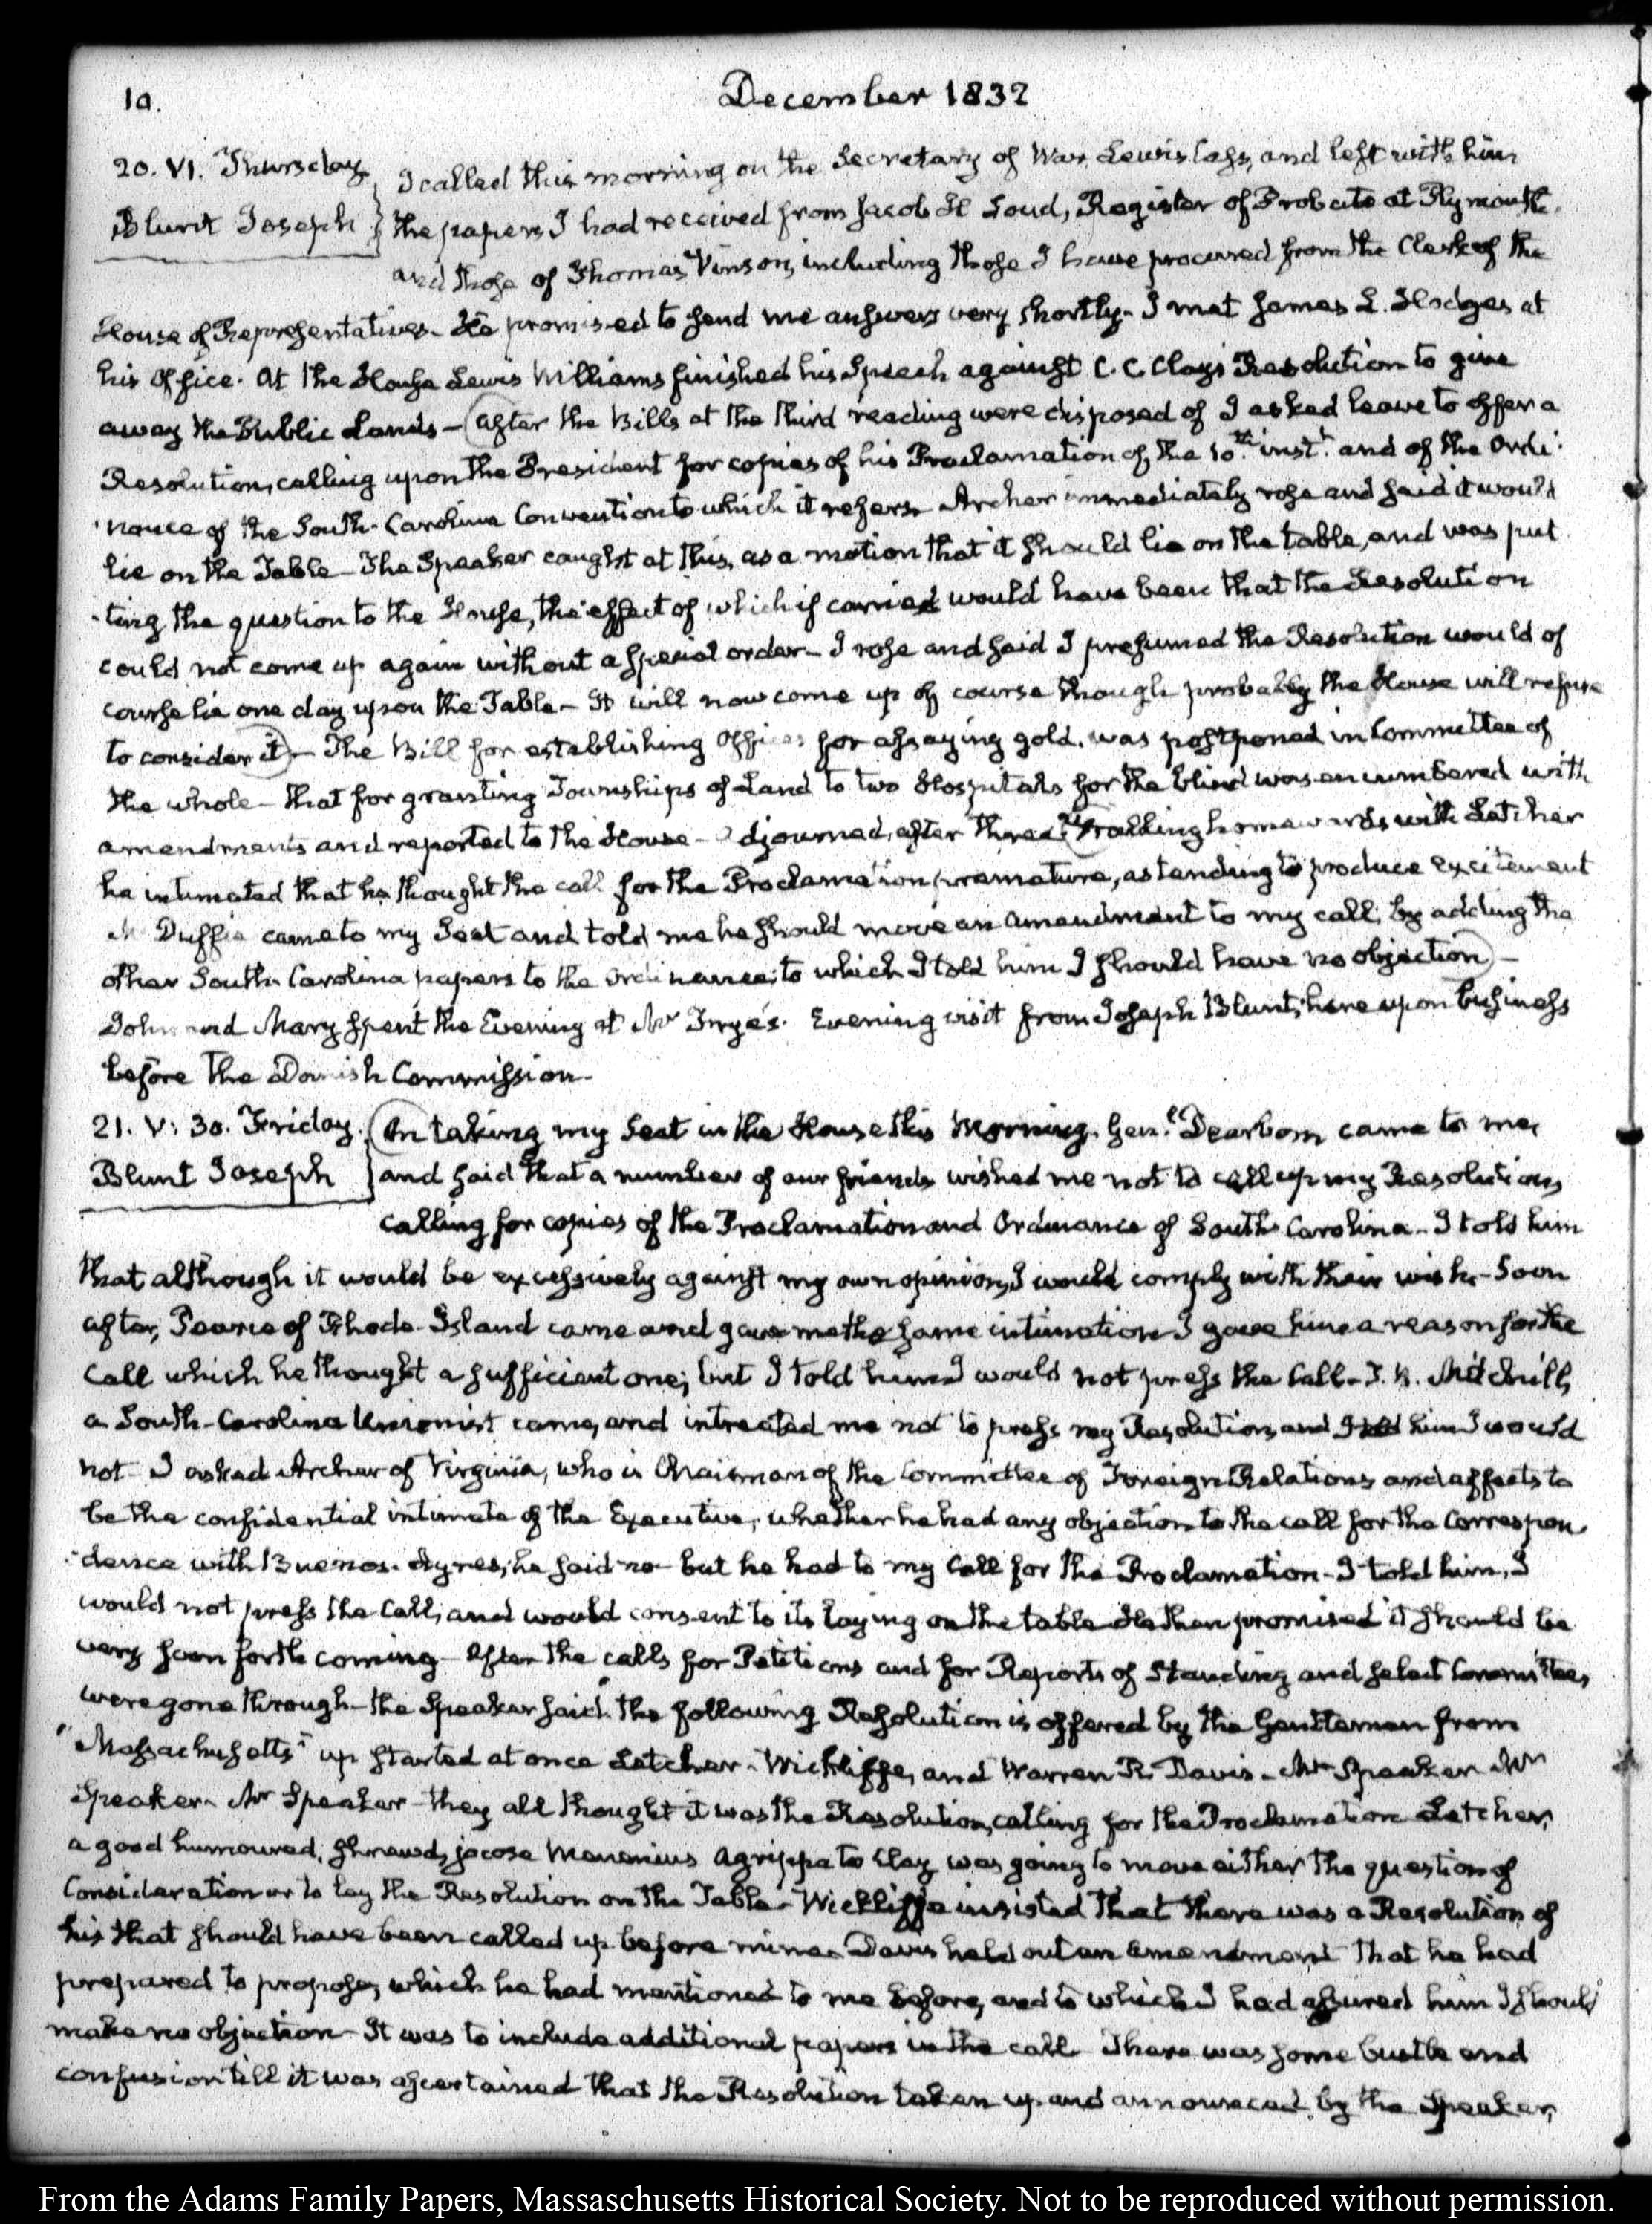 10.
December 1832
20. VI. Thursday
Blunt Joseph
I called this morning on the Secretary of War, Lewis Cass, and left with him
the papers I had received from Jacob H Loud, Register of Probate at Plymouth,
and those of Thomas Vinson, including those I have procured from the Clerk of the
House of Representatives. He promised to send me answers very shortly. I met James L. Hodges at
his Office. At the House Lewis Williams finished his Speech against C. C. Clay's Resolution to give
away the Public Lands — After the Bills at the third reading were disposed of I asked leave to offer a
Resolution, calling upon the President for copies of his Proclamation of the 10th. instt. and of the Ordi-
-nance of the South-Carolina Convention to which it refers. Archer immediately rose and said it would
lie on the Table — The Speaker caught at this, as a motion that it should lie on the table, and was put-
-ting the question to the House, the effect of which if carried would have been that the Resolution
could not come up again without a special order — I rose and said I presumed the Resolution would of
course lie one day upon the Table — It will now come up of course though probably the House will refuse
to consider it — The Bill for establishing Offices for assaying gold, was postponed in Committee of
the whole — that for granting Townships of Land to two Hospitals for the blind was encumbered with
amendments and reported to the House — Adjourned, after three. Walking homewards with Letcher
he intimated that he thought the call for the Proclamation premature, as tending to produce excitement
Mc Duffie came to my Seat and told me he should move an amendment to my call, by adding the
other South-Carolina papers to the Ordinance; to which I told him I should have no objection —
John and Mary spent the Evening at Mr Frye's. Evening visit from Joseph Blunt, here upon business
before the Danish Commission.
21. V: 30. Friday.
Blunt Joseph
On taking my Seat in the House this Morning, Genl. Dearborn came to me,
and said that a number of our friends wished me not to call up my Resolution,
calling for copies of the Proclamation and Ordinance of South Carolina — I told him
that although it would be excessively against my own opinion, I would comply with their wish — Soon
after, Pearce of Rhode-Island came and gave me the same intimation. I gave him a reason for the
call which he thought a sufficient one; but I told him I would not press the Call — T. R. Mitchill,
a South-Carolina Unionist came, and intreated me not to press my Resolution, and I told him I would
not — I asked Archer of Virginia, who is Chairman of the Committee of Foreign Relations and affects to
be the confidential intimate of the Executive, whether he had any objection to the call for the Correspon-
-dence with Buenos-Ayres; he said no — but he had to my Call for the Proclamation — I told him, I
would not press the Call, and would consent to its laying on the table. He then promised it should be
very soon forth coming — After the calls for Petitions and for Reports of Standing and select Committees,
were gone through — the Speaker said "the following Resolution is offered by the Gentleman from
"Massachusetts" up started at once Letcher, Wickliffe, and Warren R. Davis — Mr Speaker Mr
Speaker, Mr Speaker — they all thought it was the Resolution, calling for the Proclamation Letcher,
a good humoured, shrewd, jocose Menenius Agrippa to Clay was going to move either the question of
Consideration or to lay the Resolution on the Table — Wickliffe insisted that there was a Resolution of
his that should have been called up before mine. Davis held out an amendment that he had
prepared to propose, which he had mentioned to me before, and to which I had assured him I should
make no objection — It was to include additional papers in the call. There was some bustle and
confusion till it was ascertained that the Resolution taken up and announced by the Speaker,
From the Adams Family Papers, Massaschusetts Historical Society. Not to be reproduced without permission.